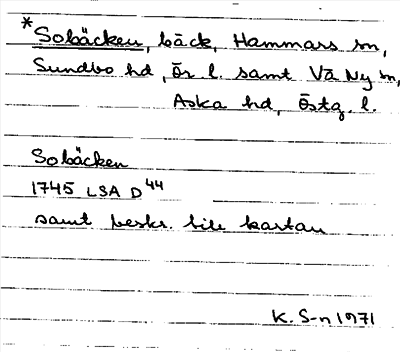 *Sobäcken, bäck, Hammars sn,
Sundbo hd, Ör l. samt Vä Ny sn,
Aska hd, Östg. l.
Sobäcken
1745 LSA D44
samt beskr. till kartan
K. S-n 1971